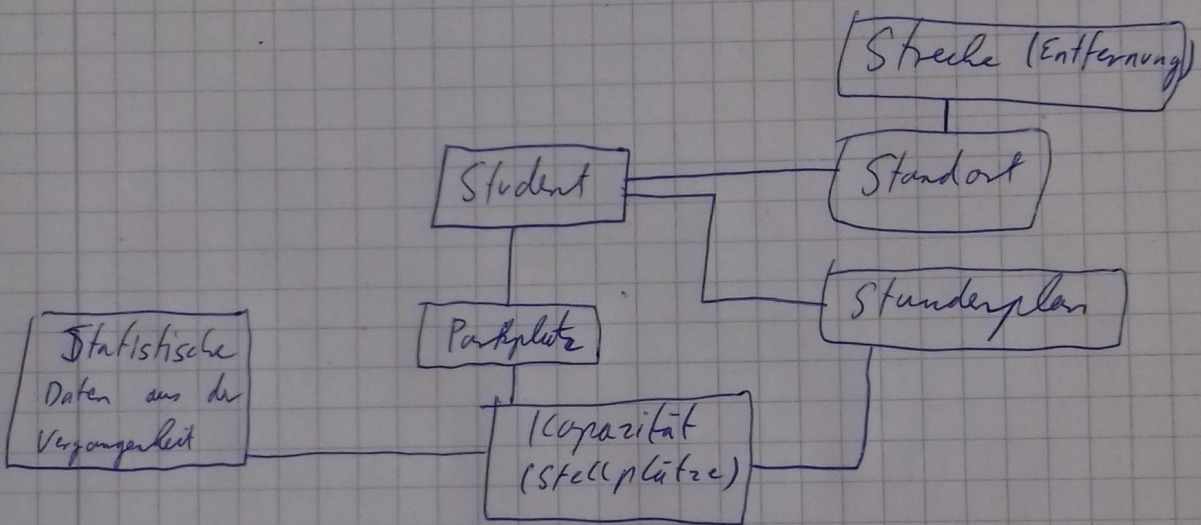 Strecke (Entfernung)
Student
Standort
Stundenplan
Parkplatz
Statistische
Daten aus der
Vergangenheit
Kapazität
(Stellplätze)